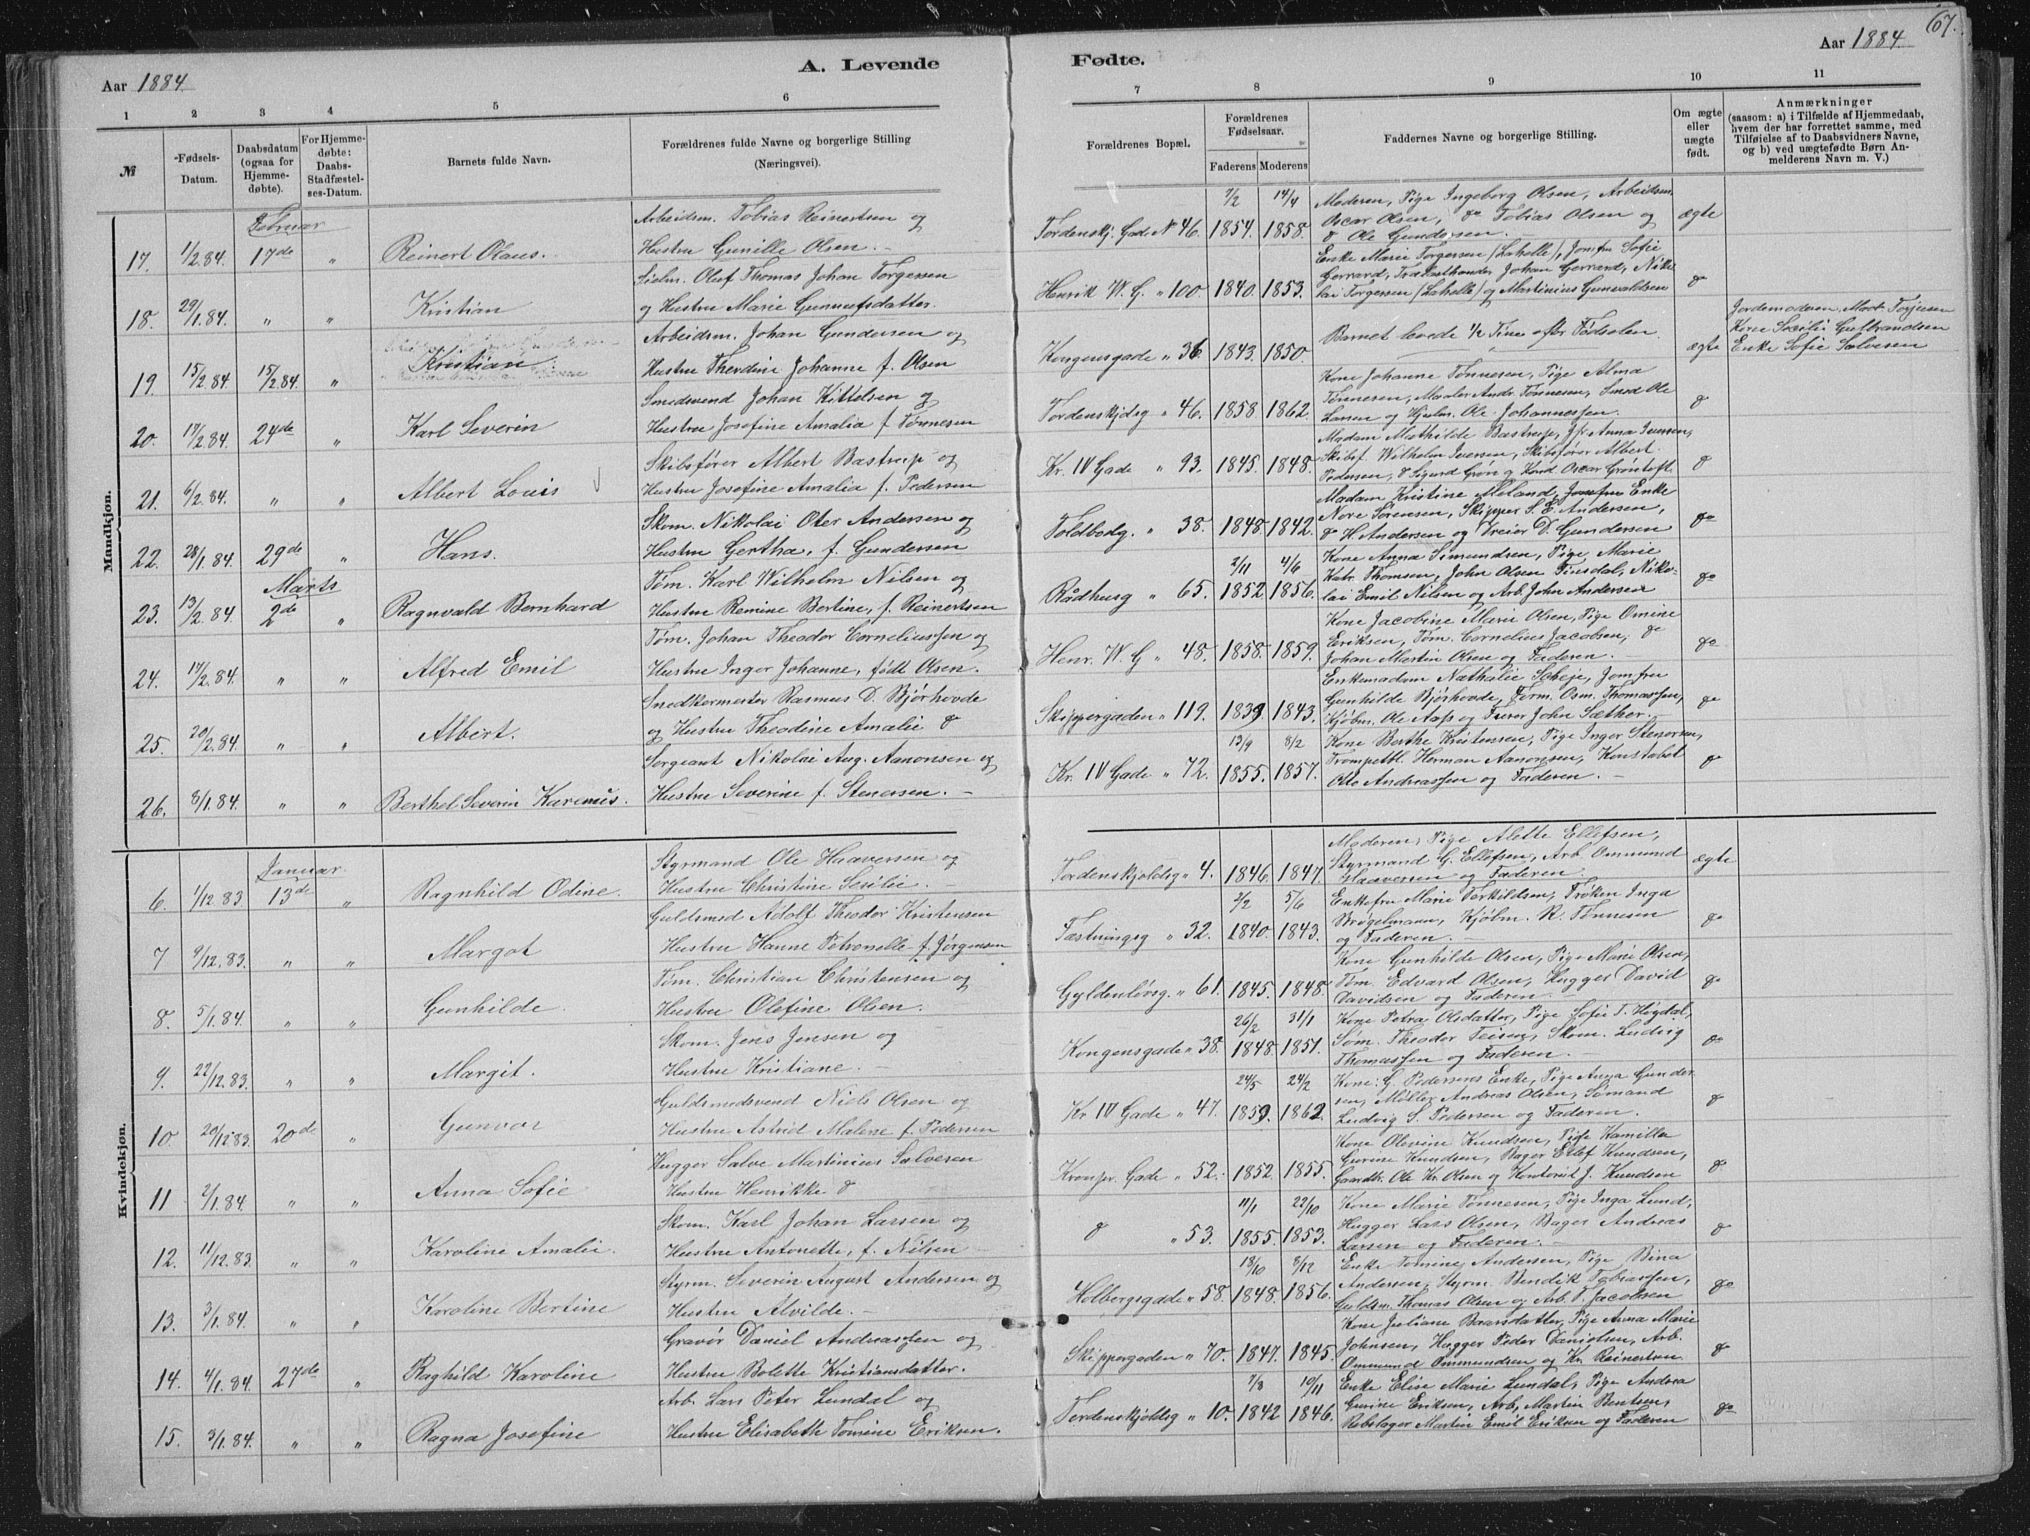 67.
Aar 1884.
A. Levende
Fødte.
Aar 1884.
1 2 3 4 5 6 7 8 9 10 11
№
Fødsels-Datum.
Daabsdatum (ogsaa for Hjemmedøbte).
For Hjemmedøbte: Daabs-Stadfæstelses-Datum.
Barnets fulde Navn.
Forældrenes fulde Navne og borgerlige Stilling
(Næringsvei).
Forældrenes Bopæl.
Forældrenes Fødselsaar.
Faderens Moderens
Faddernes Navne og borgerlige Stilling.
Om ægte eller uægte født.
Anmærkninger
(saasom: a) i Tilfælde af Hjemmedaab, hvem der har forrettet samme, med Tilføielse af to Daabsvidners Navne, og b) ved uægtefødte Børn Anmelderens Navn m. V.)
Mandkjøn.
Februar
17. 1/2 84. 17de " Reinert Olaus.
Arbeidsm. Tobias Reinertsen og
Hustru Gunille Olsen.
Tordenskj. Gade N 46. 7/2 1854. 14/4 1858.
Moderen, Pige Ingeborg Olsen, Arbeidsm.
Oscar Olsen, do Tobias Olsen og
do Ole Gundersen.
ægte
18. 29/1. 84. " " Kristian
Oluf Thomas Johan Torgersen
og Hustru Marie Gunnufsdatter.
Henrik W. G. " 100. 1840. 1853.
Enke Marie Torgersen (Lahelle), Jomfru Sofie
Gerrard, Johan Gerrard, Nikolai Torgersen (Lahelle) og Martinius Gunvaldsen
do
19. 15/2 84 15/2 84. " Kristian
Arbeidsm. Johan Gundersen og
Hustru Theodine Johanne f. Olsen
Kongensgade " 36. 1843. 1850.
Barnet levede 1/2 Time efter Fødselen.
ægte
Jordemoderen Mad. Torjesen
Kone Sæcilie Gulbrandsen
Enke Sofie Salvesen
20. 17/2. 84. 24de " Karl Severin
Smedsvend Johan Kittelsen og
Hustru Josefine Amalia f. Tønnesen
Tordenskjoldsg " 46. 1858 1862.
Kone Johanne Tønnesen, Pige Alma
Tønnesen, Maaler Andr. Tønnesen, Smed Ole
Larsen og Hjulm. Ole Johannessen.
do
21. 6/2. 84. " " Albert Louis
Skibsfører Albert Bastrup og
Hustru Josefine Amalia f. Pedersen
Kr. IV Gade " 93. 1845. 1848.
Madam Mathilde Bastrup, Jfr. Anna Iversen,
Skibsf. Wilhelm Iversen, Skibsfører Albert
Pedersen, do Sigurd Grøn og Kond. Oscar Grøntoft
do
22. 28/1. 84. 29de " Hans.
Skom. Nikolai Oter Andersen og
Hustru Gertha, f. Gundersen
Toldbodg. " 38. 1848. 1842.
Madam Kristine Meland, Jomfru Enke
Nore Sørensen, Skipper S. E. Andersen,
do H. Andersen og Dreier D. Gundersen
do
Marts
23. 13/2. 84. 2de " Ragnvald Bernhard
Tøm. Karl Wilhelm Nilsen og
Hustru Remine Bertine, f. Reinertsen
Rådhusg " 65. 2/11 1852 4/6 1856.
Kone Anna Simundsen, Pige Marie
Katr. Thomsen, John Olsen Tinsdal, Nikolai Emil Nilsen og Arb. John Andersen
do
24. 17/2. 84. " " Alfred Emil
Tøm. Johan Theodor Corneliussen og
Hustru Inger Johanne, født Olsen.
Henr. W. G " 48. 1858. 1859.
Kone Jacobine Marie Olsen, Pige Omine
Eriksen, Tøm. Cornelius Jacobsen, do
Johan Martin Olsen og Faderen.
do
25. 20/2. 84. " " Albert.
Snedkermester Rasmus D. Bjørhovde
og Hustru Theodine Amalie do
Skippergaden " 119. 1839 1843.
Enkemadam Nathalie Scheje, Jomfru
Gunhilde Bjørhovde, Osm. Thomassen,
Kjøbm. Ole Aass og John Sæther.
do
26. 8/1. 84. " " Berthel Severin Karenus.
Sergeant Nikolai Aug. Aanonsen og
Hustru Severine f. Stenersen.
Kr. IV Gade " 72. 13/9 1855. 8/2 1857.
Kone Berthe Kristensen, Pige Inger Stenersen,
Trompetbl. Herman Aanonsen, Konstabel
Ole Andreassen og Faderen.
do
Kvindekjøn.
Januar.
6. 1/12 83 13de " Ragnhild Odine.
Styrmand Ole Haaversen og
Hustru Christine Sesilie.
Tordenskjoldsg " 4. 1846. 1847.
Moderen, Pige Alette Ellefsen,
Styrmand G. Ellefsen, Arb. Ommund
Haaversen og Faderen.
ægte
7 9/12. 83. " " Margot
Guldsmed Adolf Theodor Kristensen
Hustru Hanne Petronelle f. Jørgensen
Fæstningsg " 32. 2/2 1840. 5/6 1843.
Enkefru Marie Terkildsen, Frøken Inga
Brøgelmann, Kjøbm. R. Tønnesen
og Faderen.
do
8. 5/1. 84. " " Gunhilde.
Tøm. Christian Christensen og
Hustru Olefine Olsen.
Gyldenløvsg. " 61. 1845. 1848
Kone Gunhilde Olsen, Pige Marie Olsen,
Tøm. Edvard Olsen, Hugger David
Davidsen og Faderen.
do
9. 22/12. 83. " " Margit.
Skom. Jens Jensen og
Hustru Kristiane.
Kongensgade " 38. 26/2 1848. 31/1 1851.
Kone Petra Olsdatter, Pige Sofie T. Høgdal,
Søm. Theodor Teisen, Skom. Ludvig
Thomassen og Faderen.
do
10. 20/12 83. 20de " Gunvor
Guldsmedsvend Niels Olsen og
Hustru Astrid Malene f. Pedersen
Kr. IV Gade " 47. 24/5 1859. 24/2 1862.
Kone: G. Pedersens Enke, Pige Anna Gundersen, Møller Andreas Olsen, Sømand
Ludvig S. Pedersen og Faderen.
do
11 2/1. 84. " " Anna Sofie
Hugger Salve Martinius Salvesen
Hustru Henrikke do
Kronpr. Gade " 52. 1852 1855.
Kone Olevine Knudsen, Pige Kamilla
Gurine Knudsen, Bager Ellef Knudsen,
Gaardbr. Ole Kr. Olsen og Kontorist J. Knudsen
do
12. 11/12. 83. " " Karoline Amalie.
Skom. Karl Johan Larsen og
Hustru Antonette, f. Nilsen
do " 53. 11/1 1855. 22/10 1853.
Kone Marie Tønnesen, Pige Inga Lund,
Hugger Lars Olsen, Bager Andreas
Larsen og Faderen.
do
13. 3/1. 84. " " Karoline Bertine
Styrm. Severin August Andersen og
Hustru Alvilde.
Holbergsgade " 58. 18/10 1848. 8/12 1856.
Enke Tomine Andersen, Pige Bina
Andersen, Styrm. Bendik Tobiassen,
Guldsm. Thomas Olsen og Arb. T. Jacobsen
do
14. 4/1. 84. 27de " Raghild Karoline
Gravør Daniel Andreassen og
Hustru Bolette Kristiansdatter.
Skippergaden " 70. 1847. 1845.
Kone Juliane Baarsdatter, Pige Anna Marie
Johnsen, Hugger Peder Danielsen, Arb.
Ommund Ommundsen og Kr. Reinertsen
do
15. 3/1. 84. " " Ragna Josefine
Arb. Lars Peter Lundal og
Hustru Elisabeth Tomine Eriksen.
Tordenskjoldsg " 10. 7/3 1842 19/11 1846.
Enke Elise Marie Lundal, Pige Andrea
Gurine Eriksen, Arb. Martin Bentsen,
Rebslager Martin Emil Eriksen og Faderen
do